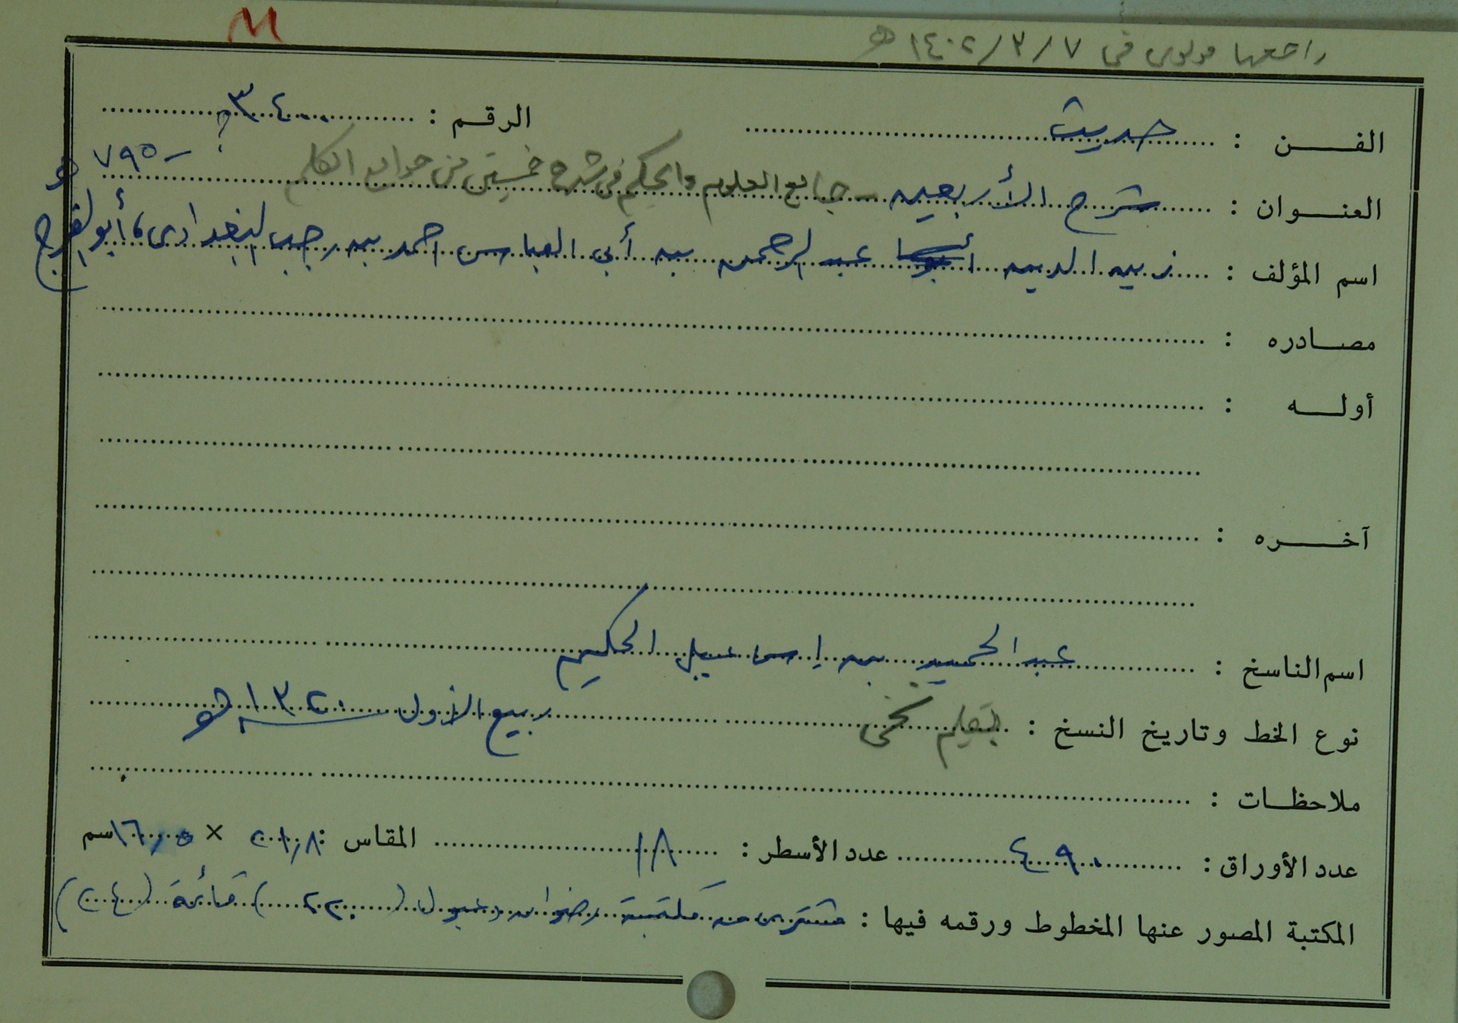 M
راجعها مولوى فى ١٤٠٢/٢/٧ هـ
الفـــن : حديث الرقـم : ٣٤٠٠
؟ - ٧٩٥ هـ
العنـوان : شرح الأربعين - جامع العلوم والحكم فى شرح خمسين من جوامع الكلم
اسم المؤلف : زين الدين عبد الرحمن بن أبي العباس احمد بن رجب البغدادى، أبو الفرج
مصـادره :
أولـــه :
آخـــره :
اسم الناسخ : عبد الحميد بن إسماعيل الحكيم
نوع الخط وتاريخ النسخ : نسخى ربيع الأول ١٣٢٠ هـ
ملاحظـات :
عدد الأوراق : ٤٩٠ عدد الأسطر : ١٨ المقاس : ٢١,٨ × ١٦,٥ سم
المكتبة المصور عنها المخطوط ورقمه فيها : مشترى من مكتبة رضوان دعبول (٢٢٠٠) قائمة (٢٤)